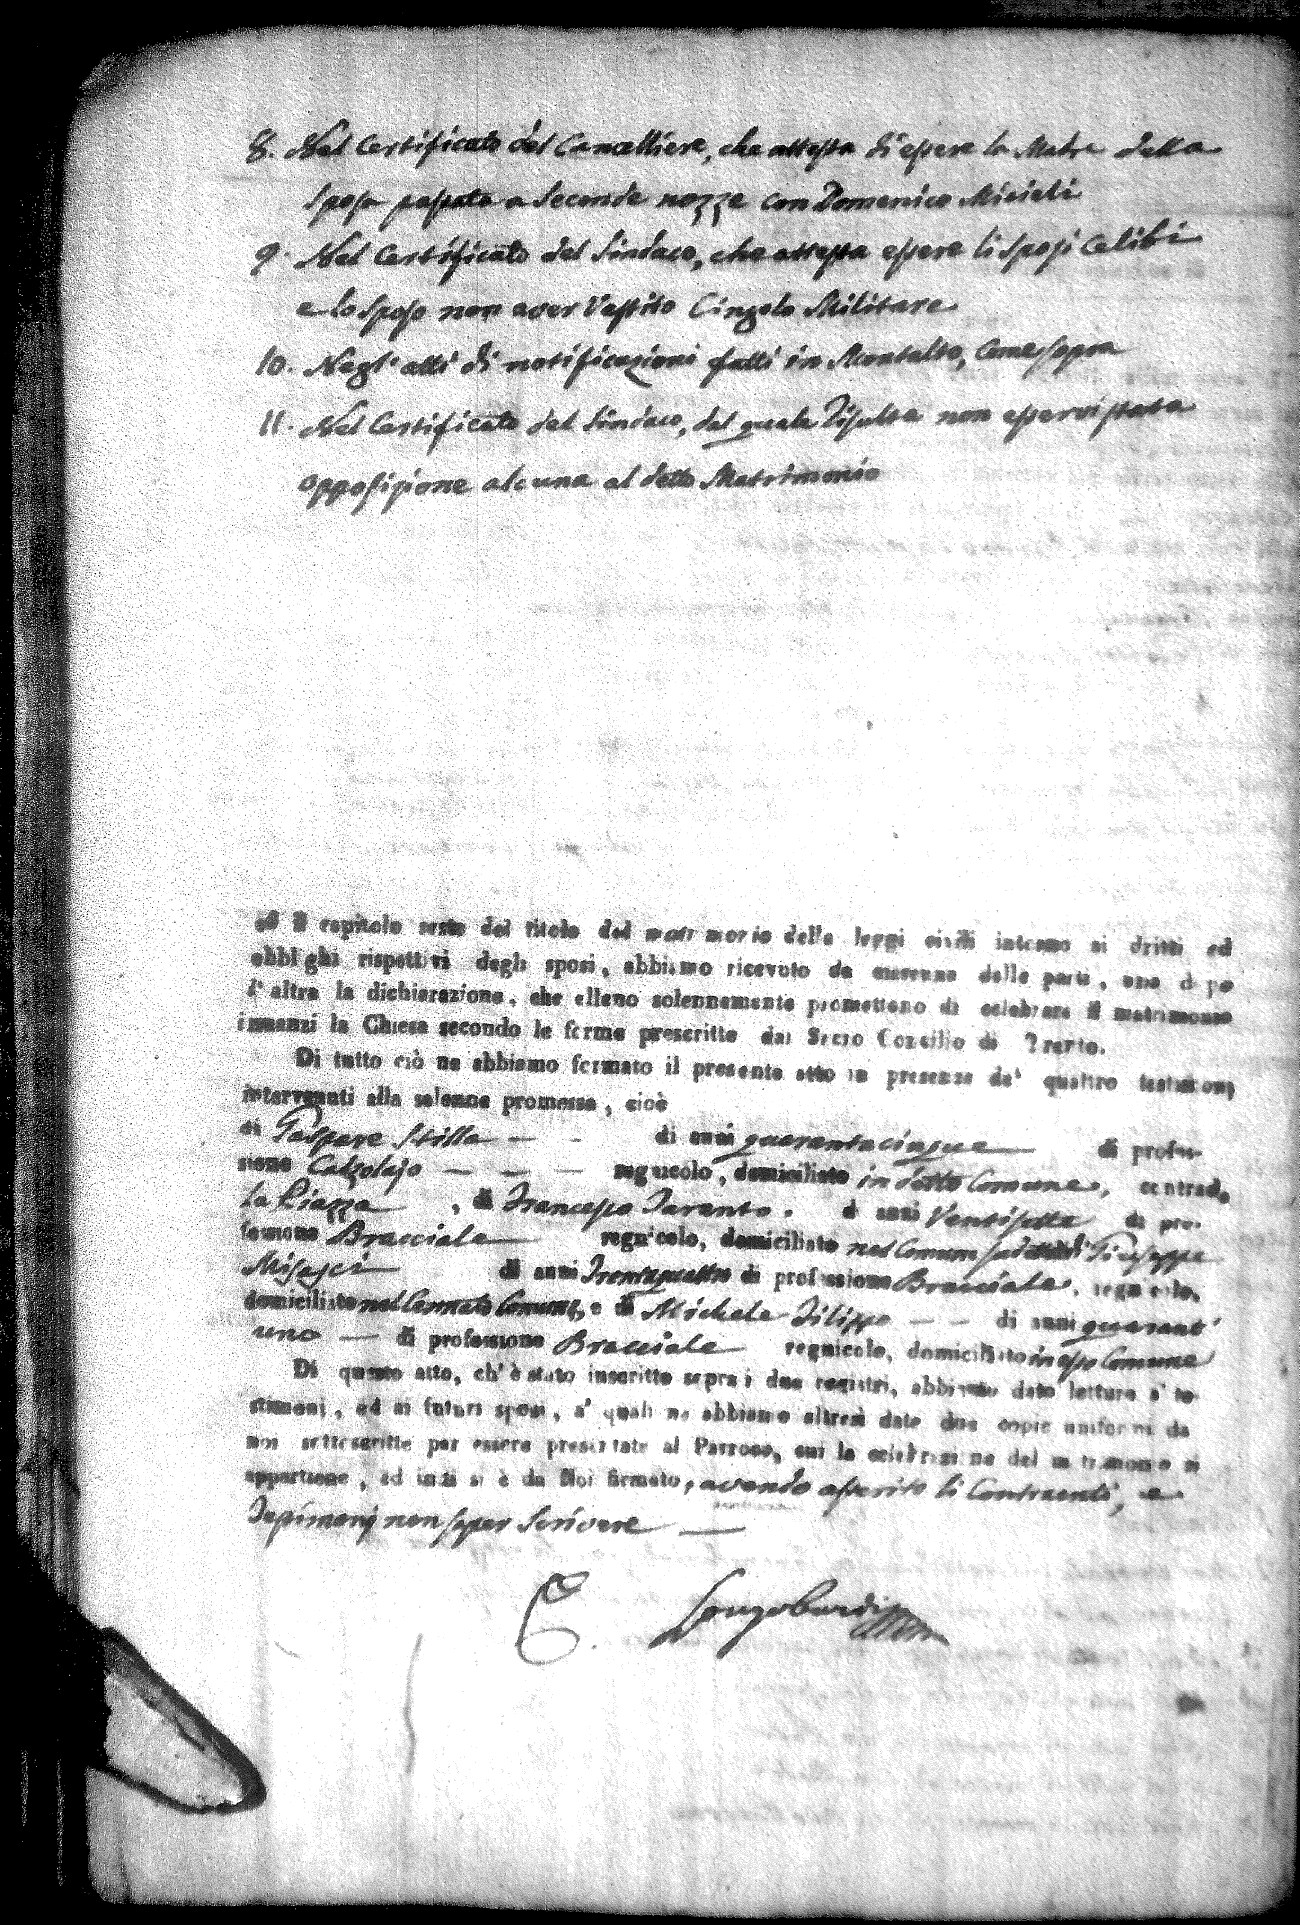 8. Nel Certificato del Cancelliere, che attesta di essere la Madre della
sposa passata a Seconde nozze con Domenico Micieli
9. Nel Certificato del Sindaco, che attesta essere li sposi Celibi
e lo sposo non aver Vestito Cingolo Militare
10. Negl' atti di notificazioni fatti in Montalto, come sopra
11. Nel Certificato del Sindaco, dal quale risulta non esservi stata
opposizione alcuna al detto Matrimonio
ed il capitolo sesto del titolo del matrimonio delle leggi civili intorno ai dritti ed
obblighi rispettivi degli sposi, abbiamo ricevuto da ciascuna delle parti, una dopo
l'altra la dichiarazione, che elleno solennemente promettono di celebrare il matrimonio
innanzi la Chiesa secondo le forme prescritte dal Sacro Concilio di Trento.
Di tutto ciò ne abbiamo formato il presente atto in presenza de' quattro testimonj
intervenuti alla solenne promessa, cioè
di Gaspare Stilla — - di anni quarantacinque di profes-
sione Calzolajo — — — regnicolo, domiciliato in detto Comune, contrada
la Piazza , di Francesco Taranto. di anni Ventisette di pro-
fessione Bracciale regnicolo, domiciliato nel Comun di Giuseppe
Misasci di anni Trentaquattro di professione Bracciale, regnicolo,
domiciliato nel Cennato Comune, e di Michele Filippo — — di anni quarant'
uno — di professione Bracciale regnicolo, domiciliato in esso Comune
Di questo atto, ch' è stato inscritto sopra i due registri, abbiamo dato lettura a' te-
stimonj, ed ai futuri sposi, a' quali ne abbiamo altresì date due copie uniformi da
noi sottoscritte per essere presentate al Parroco, cui la celebrazione del matrimonio si
appartiene, ed indi si è da Noi firmato, avendo asserito li Contraenti, e
Testimonj non saper Scrivere —
Longobardi